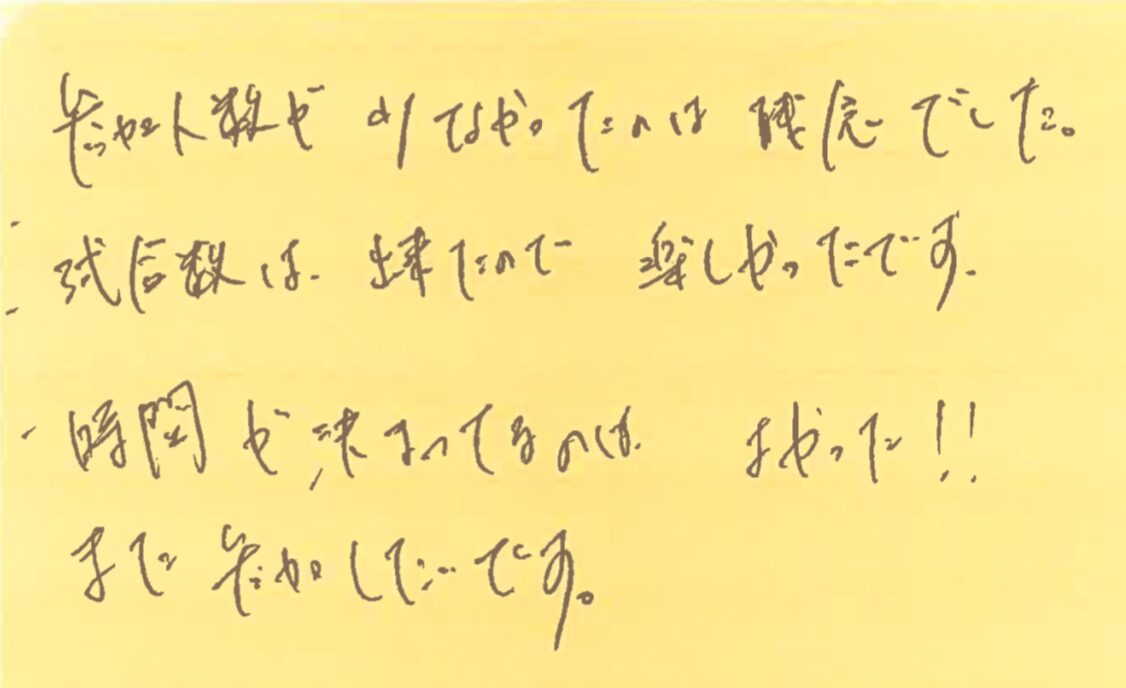 参加人数が少なかったのは残念でした。
試合数は、出来たので 楽しかったです。
時間が決まってるのは、 よかった!!
また参加したいです。